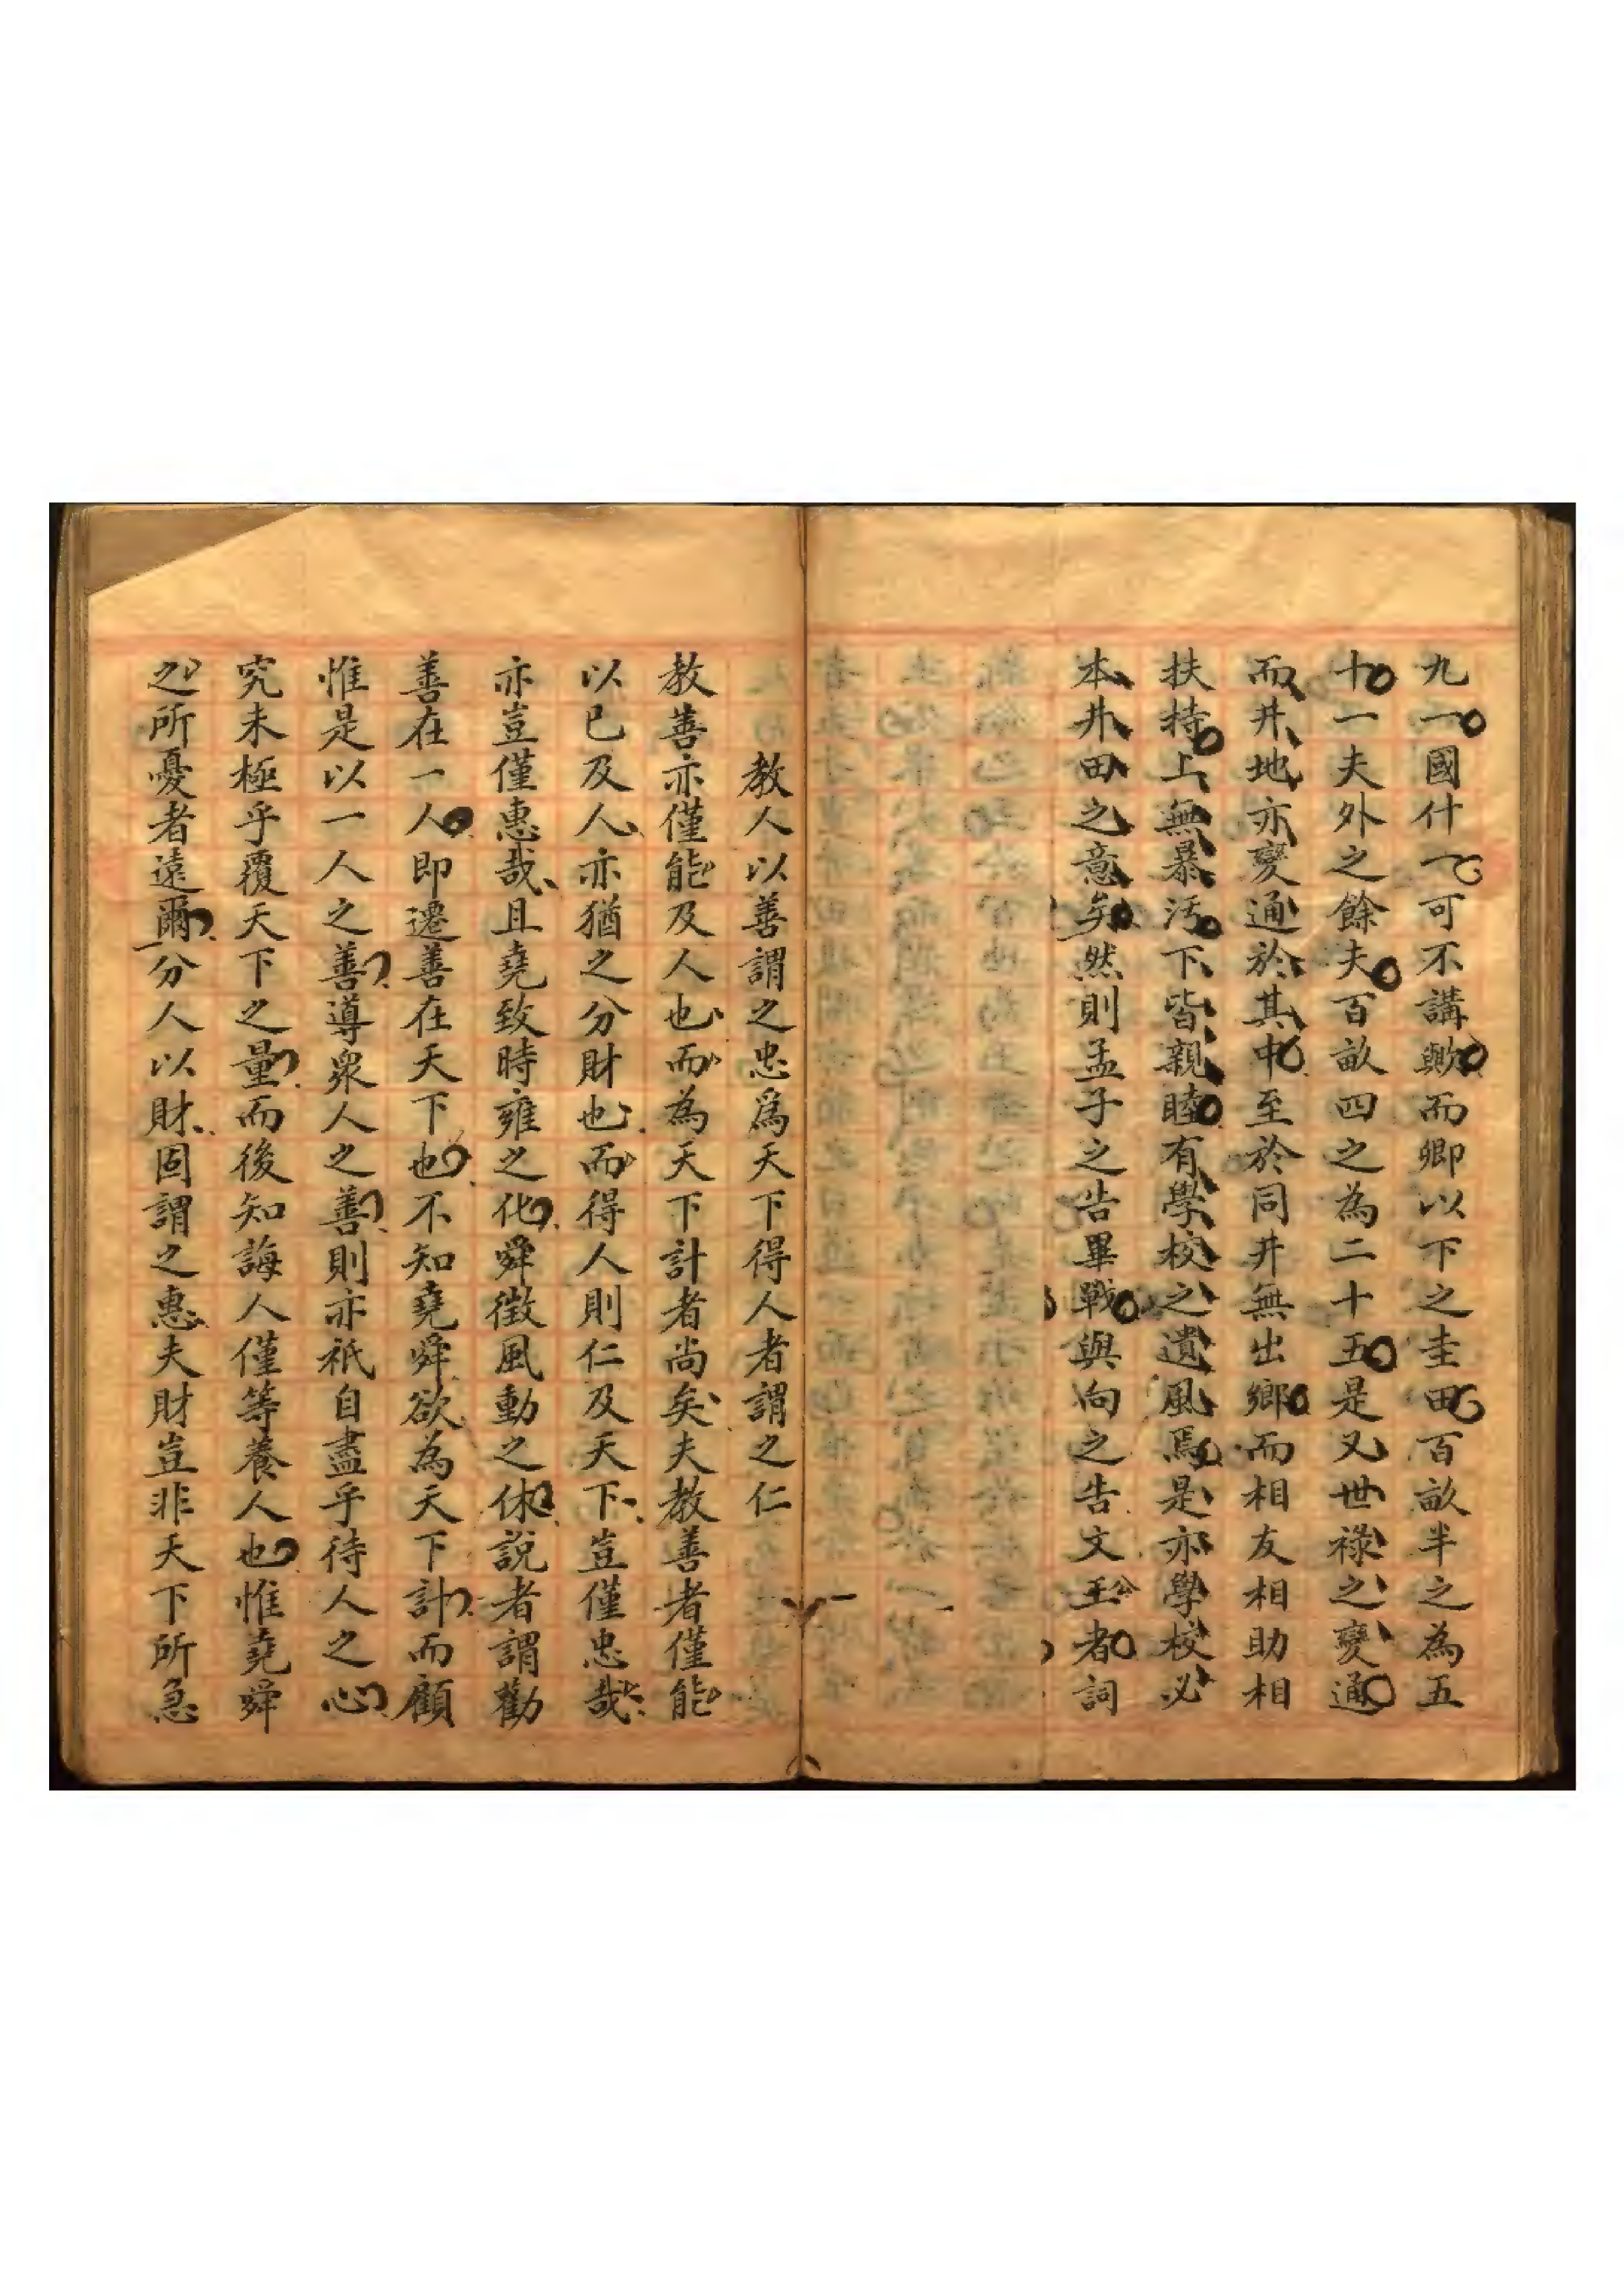 九一國什一可不講歟而卿以下之圭田百畝半之為五
十一夫外之餘夫百畝四之為二十五是又世祿之變通
而井地亦變通於其中至於同井無出鄉而相友相助相
扶持上無暴汚下皆親睦有學校之遺風焉是亦學校必
本井田之意矣然則孟子之告畢戰與向之告文王公者詞
教人以善謂之忠爲天下得人者謂之仁
教善亦僅能及人也而為天下計者尚矣夫教善者僅能
以已及人亦猶之分財也而得人則仁及天下豈僅忠哉
亦豈僅惠哉且堯致時雍之化舜徵風動之休說者謂勸
善在一人即遷善在天下也不知堯舜欲為天下計而顧
惟是以一人之善導衆人之善則亦祇自盡乎待人之心
究未極乎覆天下之量而後知誨人僅等養人也惟堯舜
之所憂者遠爾分人以財固謂之惠夫財豈非天下所急